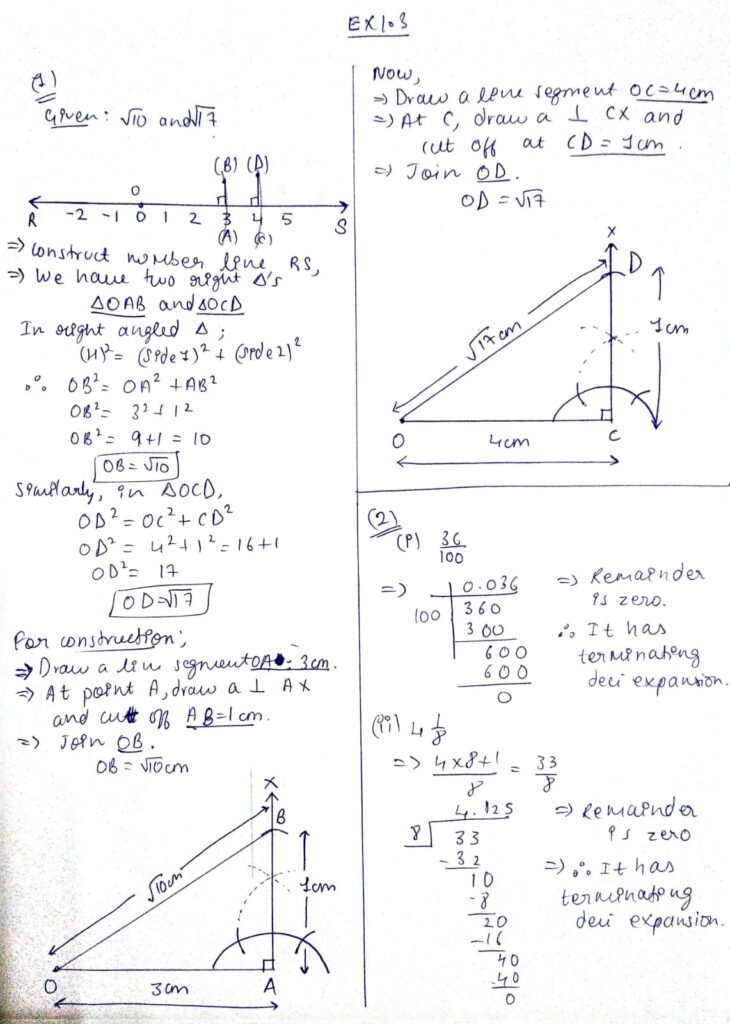 EX 1.3
(1)
Given: √10 and √17
(B) (D)
O
R -2 -1 0 1 2 3 4 5 S
(A) (C)
=> Construct number line RS,
=> We have two right Δ's
ΔOAB and ΔOCD
In right angled Δ ;
(H)² = (Side 1)² + (Side 2)²
∴ OB² = OA² + AB²
OB² = 3² + 1²
OB² = 9+1 = 10
OB = √10
Similarly, in ΔOCD,
OD² = OC² + CD²
OD² = 4² + 1² = 16+1
OD² = 17
OD = √17
For construction;
=> Draw a line segment OA = 3cm.
=> At point A, draw a ⊥ AX
and cut off AB = 1cm.
=> Join OB.
OB = √10 cm
X
B
√10cm
1cm
O
A
3cm
Now,
=> Draw a line segment OC = 4cm
=> At C, draw a ⊥ CX and
cut off at CD = 1cm.
=> Join OD.
OD = √17
X
D
√17 cm
1cm
O
C
4cm
(2)
(i) 36/100
=> 0.036
100 360
300
600
600
0
=> Remainder
is zero.
∴ It has
terminating
deci expansion.
(ii) 4 1/8
=> 4×8+1/8 = 33/8
4.125
8 33
-32
10
-8
20
-16
40
-40
0
=> Remainder
is zero
=> ∴ It has
terminating
deci expansion.